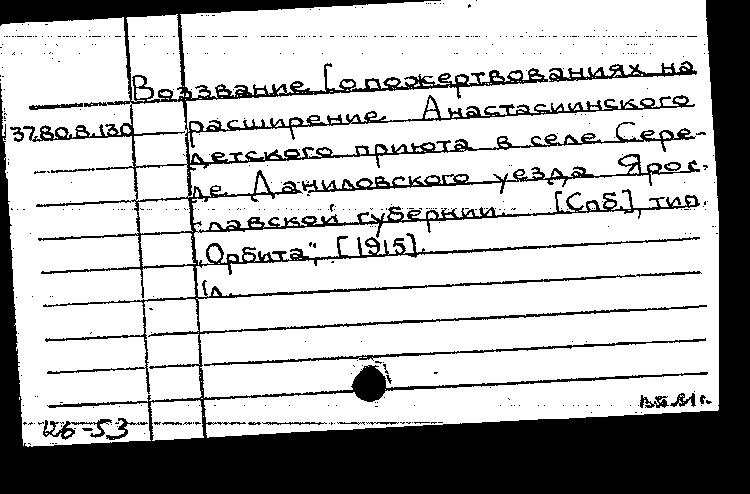 Воззвание [о пожертвованиях на
37.80.8.130
расширение Анастасиинского
детского приюта в селе Сере-
де Даниловского уезда Ярос-
славской губернии. [Спб.], тип.
"Орбита", [1915].
1л.
В-53